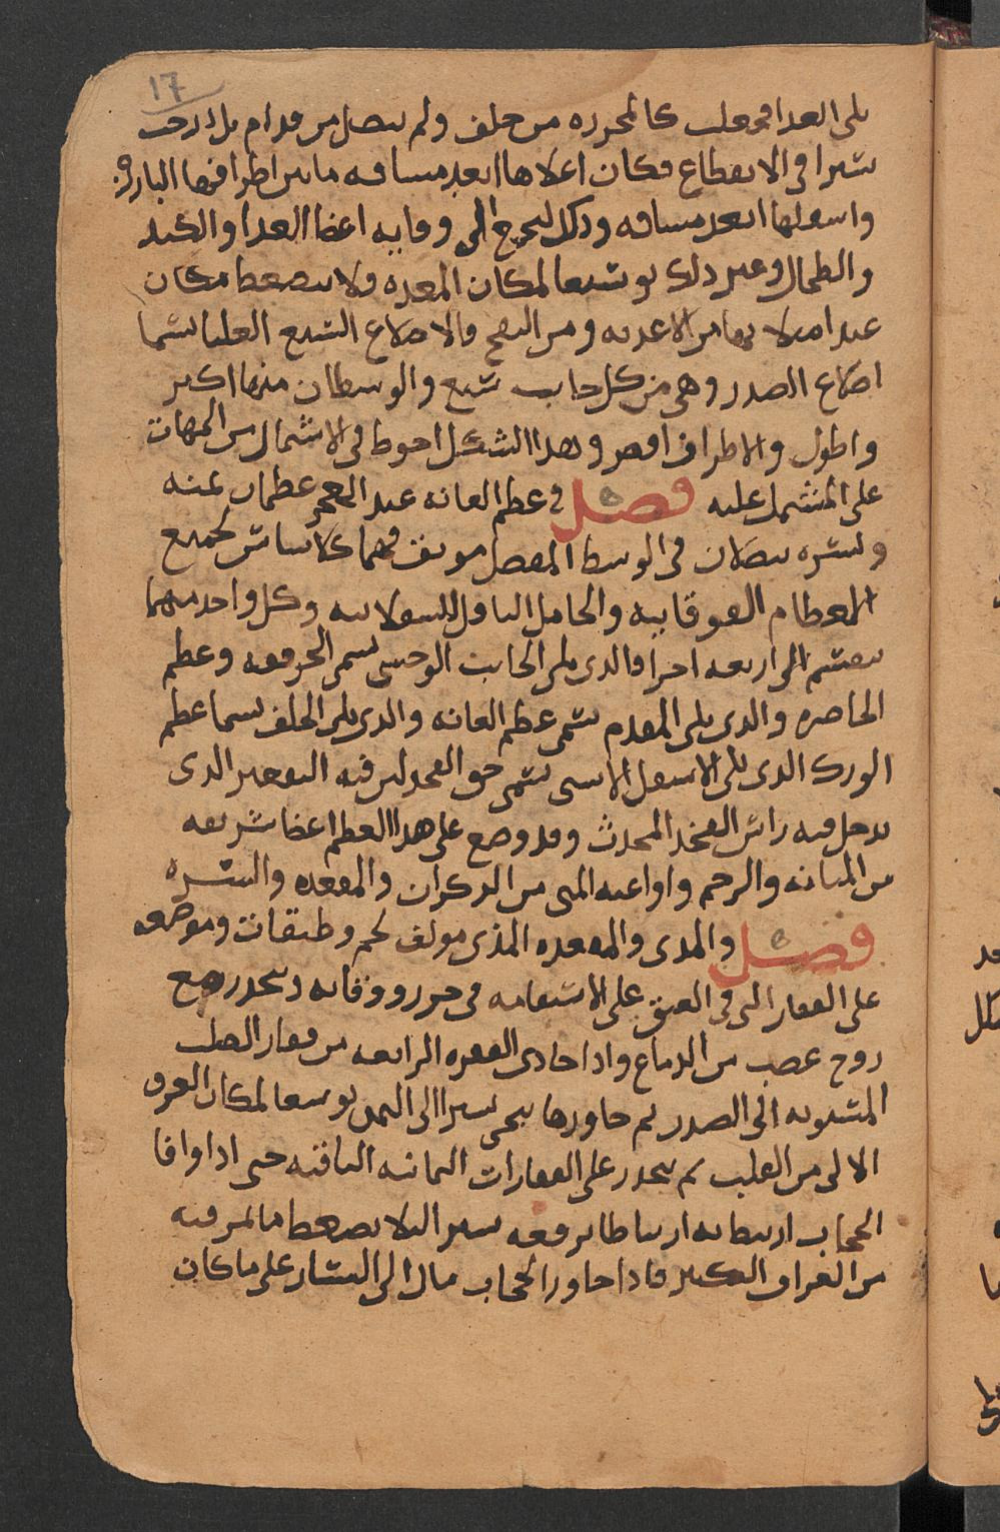 17
يلى الغدا فجعلت كالمحرزه من خلف ولم تتصل من قدام بل ادرجت
يسيرا فى الانقطاع فكان اعلاها ابعد مسافه مابين اطرافها البارزه
واسفلها ابعد مسافه وذلك ليخرج الى وقايه اعضا الغدا والكبد
والطحال وغير ذلك توسيعا لمكان المعده ولا ينضغط مكان
عند امتلا يها من الاغديه ومن النفخ والاضلاع السبع العليا تسما
اضلاع الصدر وهى من كل جانب سبع والوسطان منها اكبر
واطول والاطراف اقصر وهدا الشكل احوط فى الاشتمال من الجهات
على المشتمل عليه فصل فى عظم العانه عند العجز عظمان يمنه
ويسره يتصلان فى الوسط المفصل موثق فهما كالاساس لجميع
العظام الفوقانيه والحامل الناقل للسفلانيه وكل واحد منهما
ينقسم الى اربعه اجزا فالدى يلى الجانب الوحشى يسمى الحرقفه وعظم
الخاصره والدى يلى المقدم يسمى عظم العانه والدى يلى الخلف يسما عظم
الورك الدى يلى الاسفل الانسى يسمى حق الفخد لان فيه التقعير الدى
يدخل فيه راس الفخد المحدث وقد وضع على هدا العظم اعضا شريفه
من المثانه والرحم واوعيه المنى من الدكران والمقعده والسره
فصل والمرى والمعده المرى مولف لحم وطبقات وموضعه
على الفقار التى فى العنق على الاستقامه فى حرز ووقايه وينحدر مع
زوج عصب من الدماغ وادا حادى الفقره الرابعه من فقار الصلب
المنسوبه الى الصدر ثم جاوزها ينحى يسيرا الى اليمين توسعا لمكان العرق
الاتى من القلب ثم ينحدر على الفقارات الثمانيه الباقيه حتى ادا وافا
الحجاب ارتبط به ارتباطا يرفعه يسيرا ليلا يضغط ما يمر فيه
من العرق الكبير فادا جاوز الحجاب مال الى اليسار على ما كان